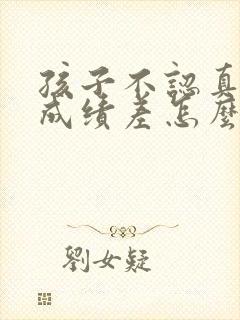 孩子不認真
成績差怎麼
劉女疑